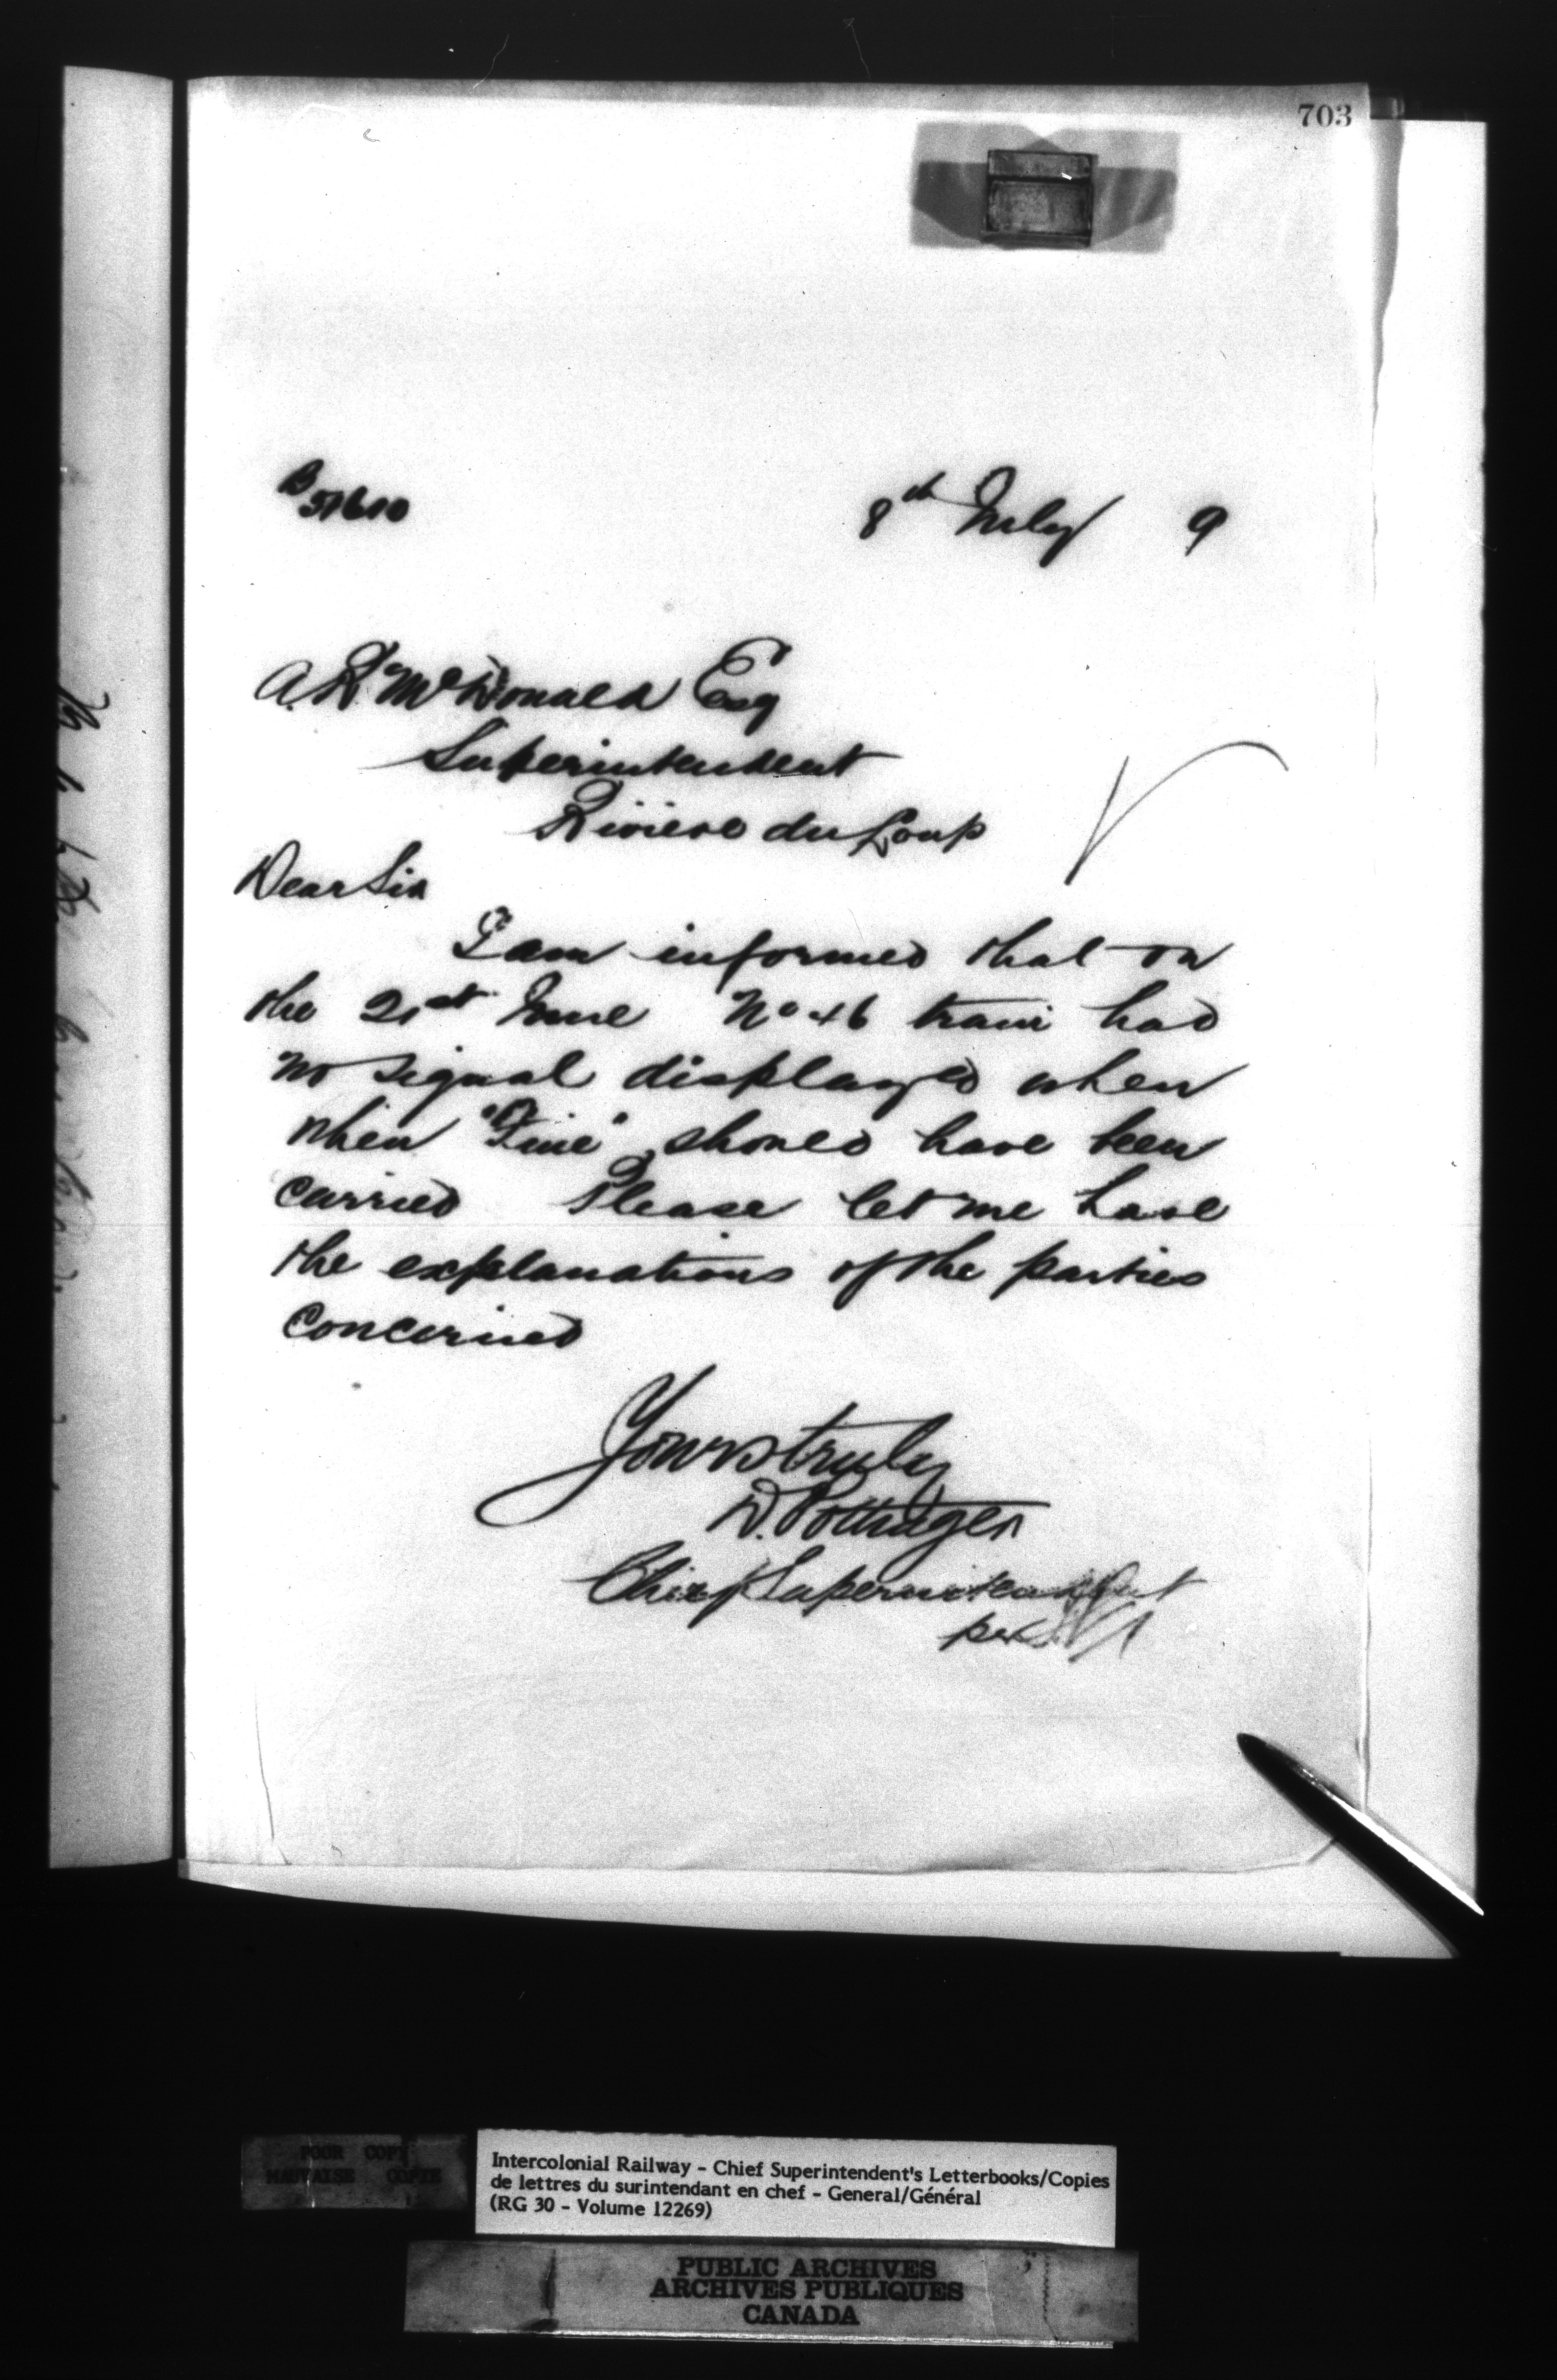 703
B 51610
8th July 9
A. R. McDonald Esq
Superintendent
Rivière du Loup
Dear Sir
I am informed that on
the 21st June No 46 train had
no signal displayed when
when "Fine" should have been
carried Please let me have
the explanations of the parties
concerned
Yours truly
D. Pottinger
Chief Superintendent
per
POOR COPY
MAUVAISE COPIE
Intercolonial Railway - Chief Superintendent's Letterbooks/Copies
de lettres du surintendant en chef - General/Général
(RG 30 - Volume 12269)
PUBLIC ARCHIVES
ARCHIVES PUBLIQUES
CANADA